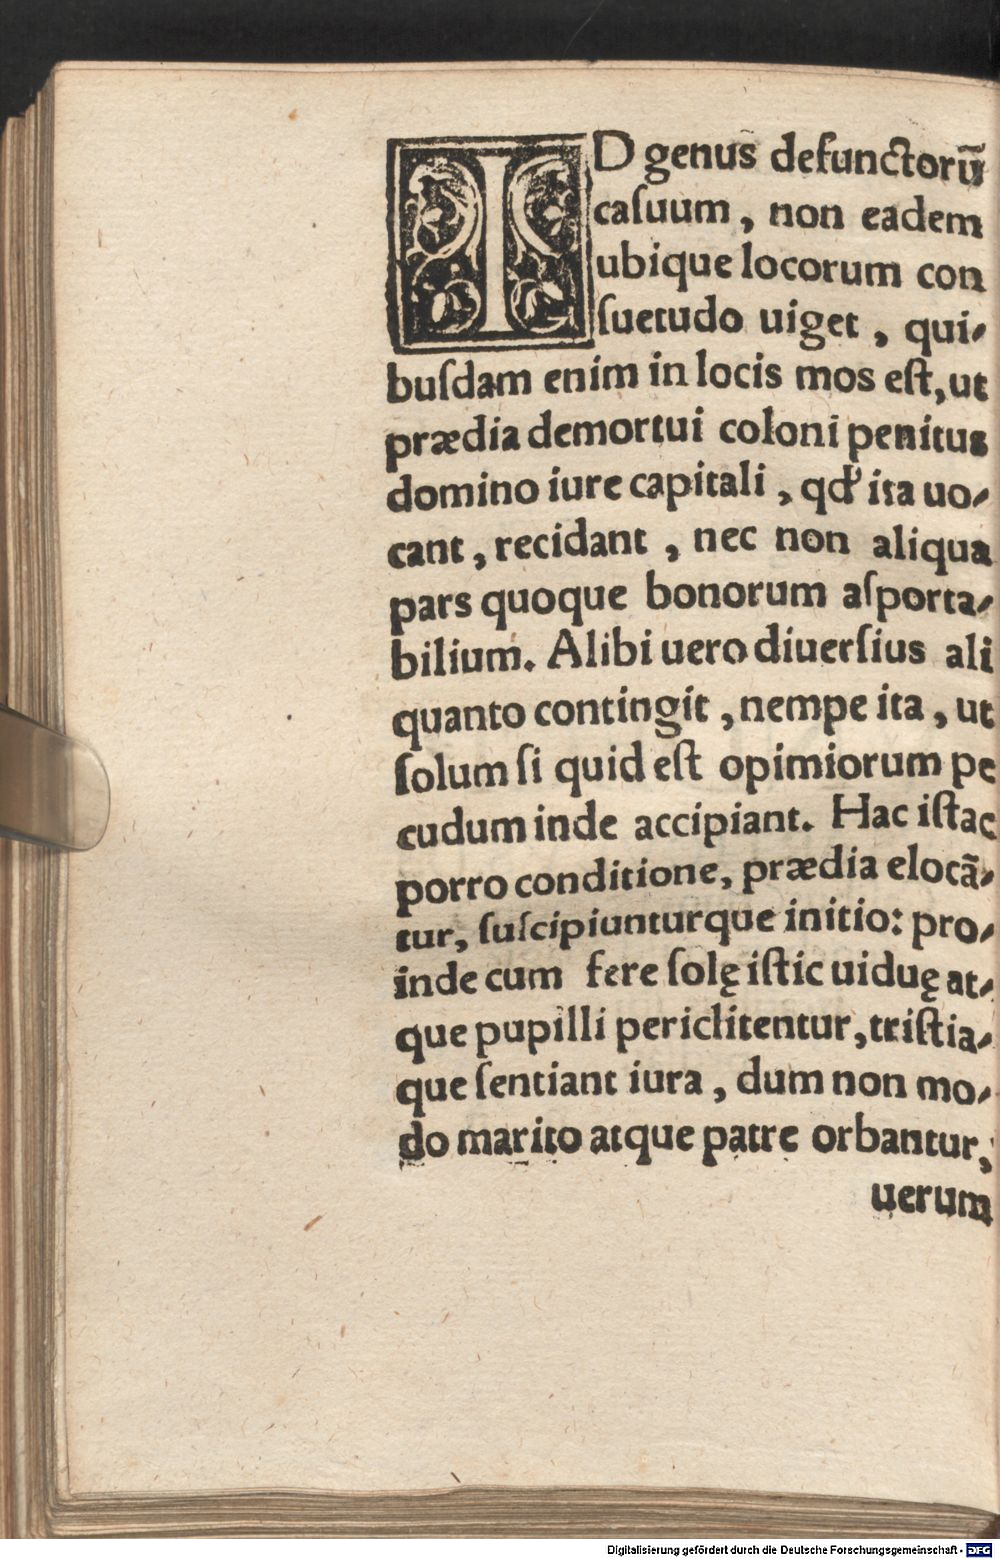 ID genus defunctorũ
caſuum, non eadem
ubique locorum con
ſuetudo uiget, qui⸗
buſdam enim in locis mos eſt, ut
prædia demortui coloni penitus
domino iure capitali, qđ ita uo⸗
cant, recidant, nec non aliqua
pars quoque bonorum aſporta⸗
bilium. Alibi uero diuerſius ali
quanto contingit, nempe ita, ut
ſolum ſi quid eſt opimiorum pe
cudum inde accipiant. Hac iſtac
porro conditione, prædia elocã⸗
tur, ſuſcipiunturque initio: pro⸗
inde cum fere ſolę iſtic uiduę at⸗
que pupilli periclitentur, triſtia⸗
que ſentiant iura, dum non mo⸗
do marito atque patre orbantur,
uerum
Digitalisierung gefördert durch die Deutsche Forschungsgemeinschaft - DFG